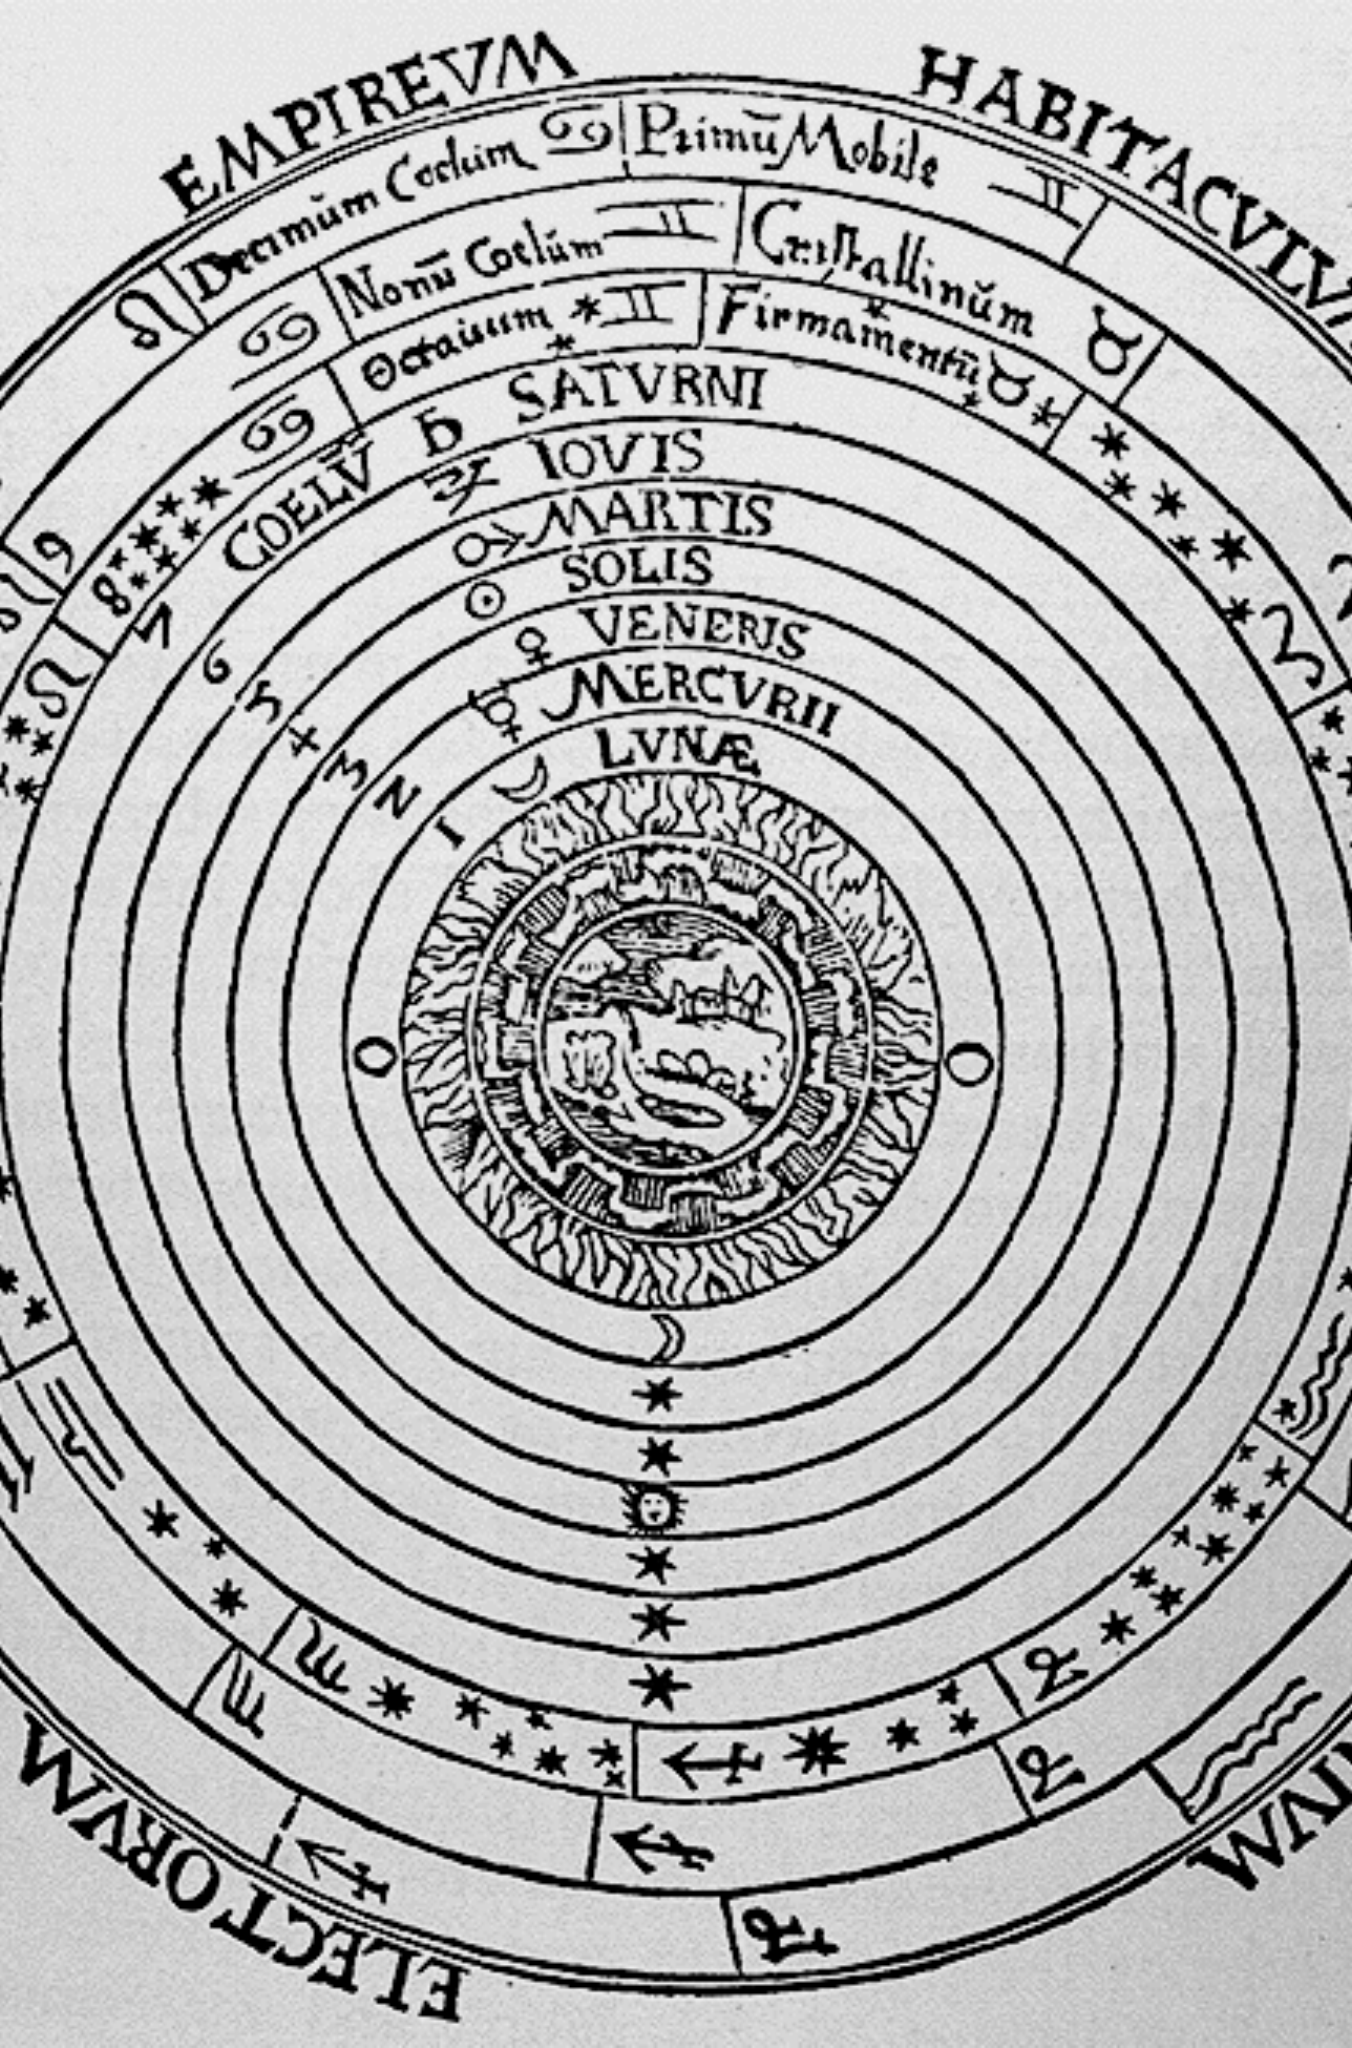 EMPIREVM HABITACVLV
Decimūm Coelum ♋ Primū Mobile ♊
♌
Nonū Coelūm ♊ Cristallinūm ♉
♋
Octauum ♊ Firmamentū ♉
♋
COELV̄ ♄ SATVRNI
♃ IOVIS
♂ MARTIS
☉ SOLIS
♀ VENERIS
☿ MERCVRII
☽ LVNÆ
9
8
7
6
5
4
3
2
1
O O
ELECTORVM
IVM